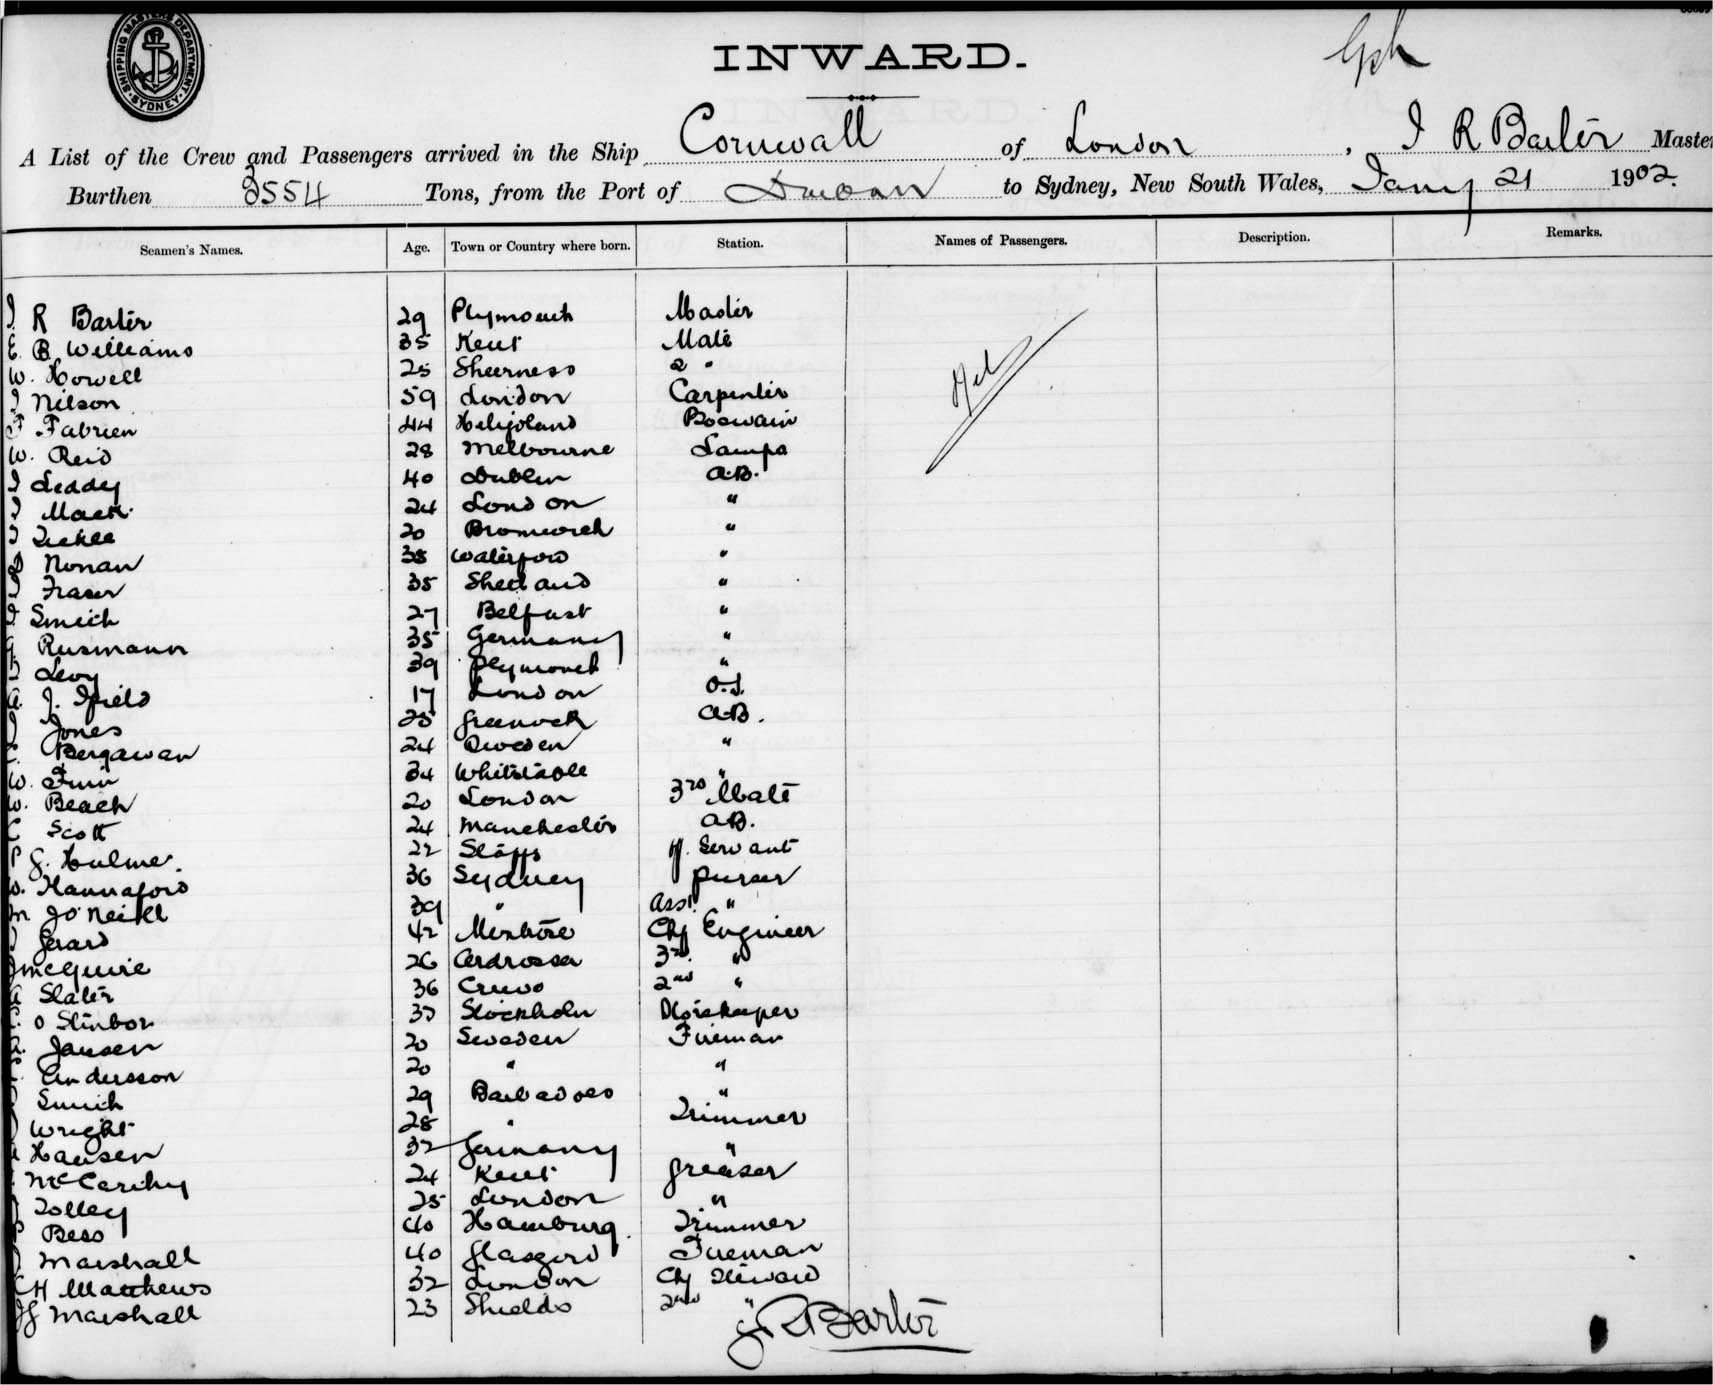 SHIPPING MASTERS DEPARTMENT
SYDNEY
INWARD.
A List of the Crew and Passengers arrived in the Ship Cornwall of London, J R Barter Master
Burthen 3554 Tons, from the Port of Durban to Sydney, New South Wales, Jany 21 1902.
Seamen's Names. Age. Town or Country where born. Station. Names of Passengers. Description. Remarks.
J. R Barter 29 Plymouth Master
E. B Williams 35 Kent Mate
W. Howell 25 Sheerness 2 "
J Nilson 59 London Carpenter
F Fabrien 44 Heligoland Boswain
W. Reid 28 Melbourne Lamps
J Leddy 40 Dublin A.B.
J Mack 24 London "
J Tickle 20 "
Nonan 38 Waterford "
J Fraser 35 Shetland "
J Smith 27 Belfast "
Rusmann 35 Germany "
Levy 39 Plymouth "
A. J. Ifield 17 London O.S.
J Jones 25 Greenock A.B.
Bergawan 24 Sweden "
W. 34 Whitstable "
W. Beach 20 London 3rd Mate
C Scott 24 Manchester A.B.
P G. Hulme. 22 Staffs Servant
W. Hannaford 36 Sydney Purser
M J O'Neill 39 " Asst. "
J Gerard 42 Chf Engineer
J McGuire 26 Ardrossa 3rd "
A Slater 36 Crewe 2nd "
C. O Stinbor 37 Stockholm Storekeeper
A. Jansen 20 Sweden Fireman
Andersson 20 " "
Smith 29 Barbadoes "
J Wright 28 " Trimmer
Hansen 32 Germany "
McCarthy 24 Kent Greaser
J Tolley 25 London "
P Bess 40 Hamburg. Trimmer
J Marshall 40 Glasgow Fireman
C H Matthews 32 London Chf Steward
J G Marshall 23 Shields 2nd "
J R Barter